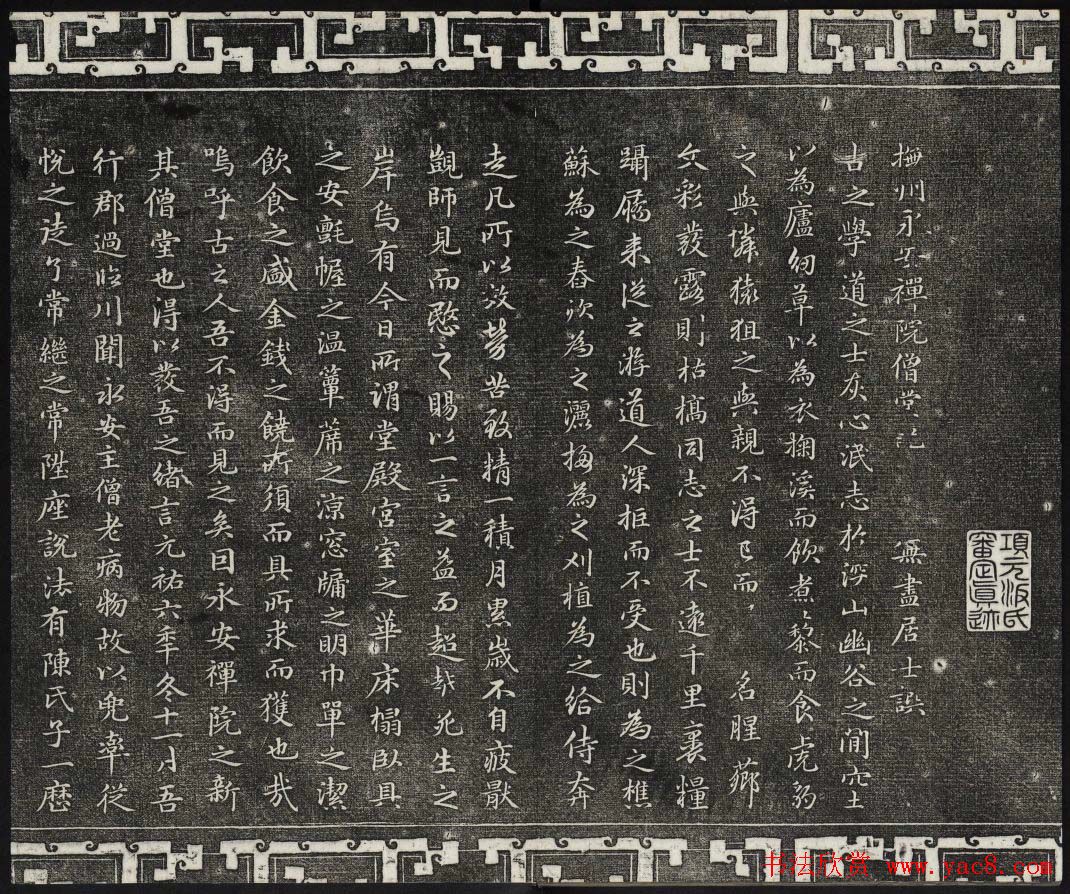 撫州永安禪院僧堂記 無盡居士譔
古之學道之士灰心泯志於深山幽谷之間穴土
以為廬紉草以為衣掬溪而飲煮黎而食虎豹
之與憐猿狙之與親不得已而名腥薌
文彩發露則枯槁同志之士不遠千里裹糧
躡屩来從之游道人深拒而不受也則為之樵
蘇為之舂炊為之灑掃為之刈植為之給侍奔
走凡所以效勞苦致精一積月累歲不自疲厭
覬師見而愍之賜以一言之益而超越死生之
岸烏有今日所謂堂殿宮室之華床榻臥具
之安氈幄之温簟蓆之涼窓牖之明巾單之潔
飲食之盛金錢之饒所須而具所求而獲也哉
嗚呼古之人吾不得而見之矣因永安禪院之新
其僧堂也得以發吾之緒言元祐六年冬十一月吾
行郡過臨川聞永安主僧老病物故以兜率從
悅之徒了常繼之常陞座說法有陳氏子一歷
項元汴氏審定真跡
书法欣赏 www.yac8.com